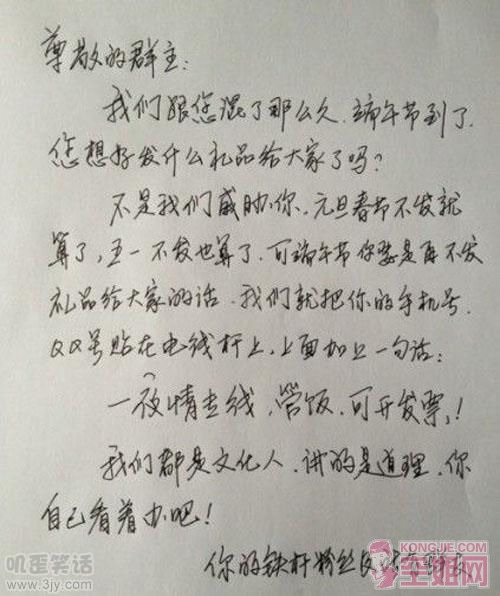 尊敬的群主：
我们跟您混了那么久、端午节到了.
您想好发什么礼品给大家了吗？
不是我们威胁你、元旦春节不发就
算了，五一不发也算了、可端午节你要是再不发
礼品给大家的话、我们就把你的手机号、
QQ号贴在电线杆上，上面加上一句话：
一夜情专线，管饭、可开发票！
我们都是文化人、讲的是道理、你
自己看着办吧！
你的铁杆粉丝
叽歪笑话
www.3jy.com
KONGJIE.COM
空姐网